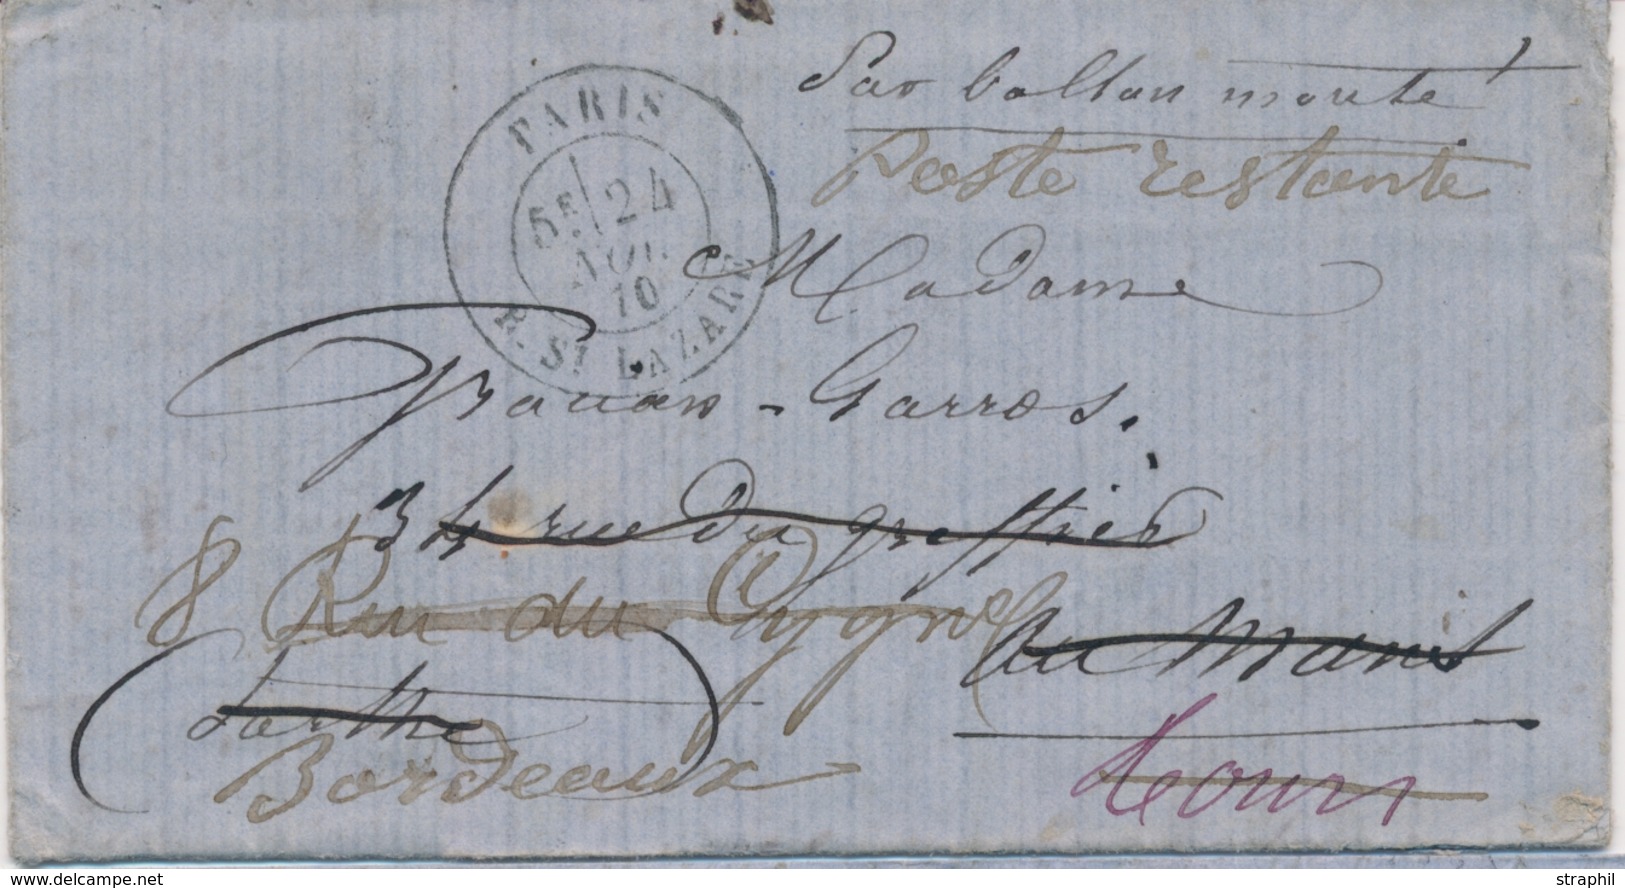 Par ballon monté
Poste restante
PARIS
5E 24
AOU.
70
R. ST LAZARE
Madame
- Garros.
34 rue du greffier
8 Rue du Cygne
au Mans
Sarthe
Bordeaux
Tours
www.delcampe.net
straphil